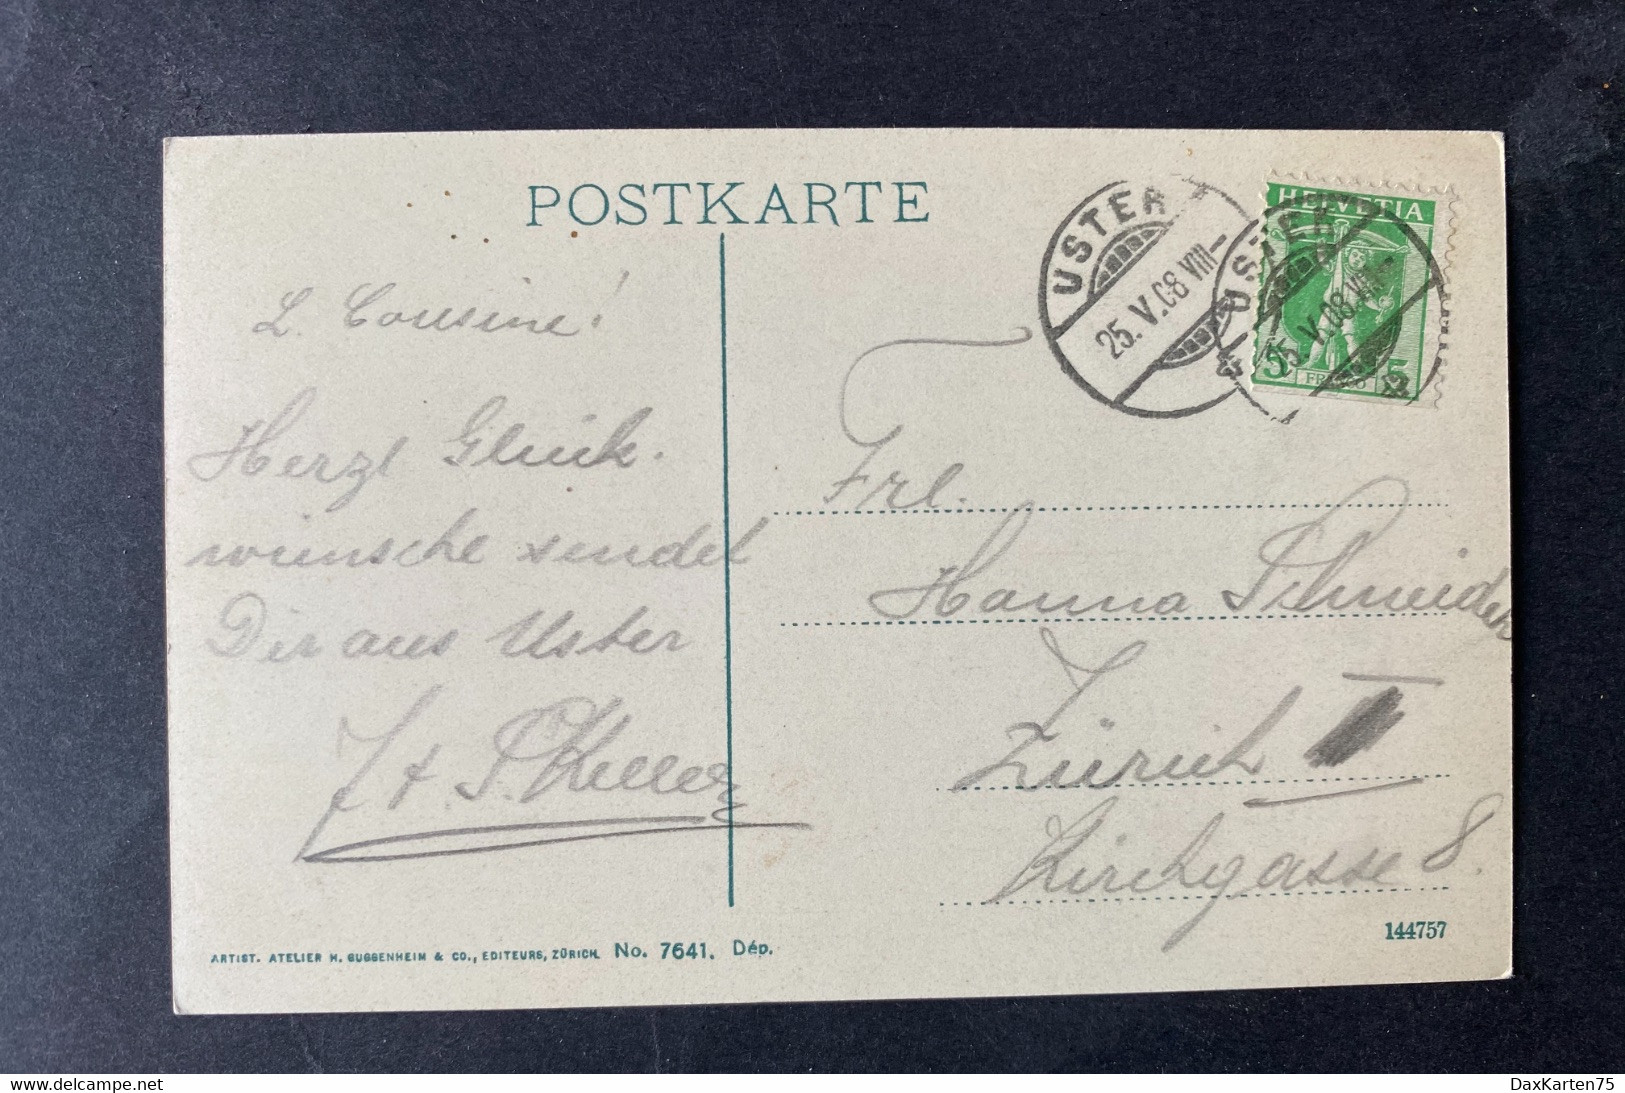 POSTKARTE
HELVETIA
FRANCO
5 5
USTER
25.V.08.VIII-
USTER
25.V.08.VIII-
L. Cousine!
Herzl Glück.
wünsche sendet
Dir aus Uster
J + P. Keller
Frl.
Hanna Schneider
Zürich I
Kirchgasse 8.
144757
ARTIST. ATELIER H. GUGGENHEIM & CO., EDITEURS, ZÜRICH. No. 7641. Dép.
delcampe.net
DaxKarten75